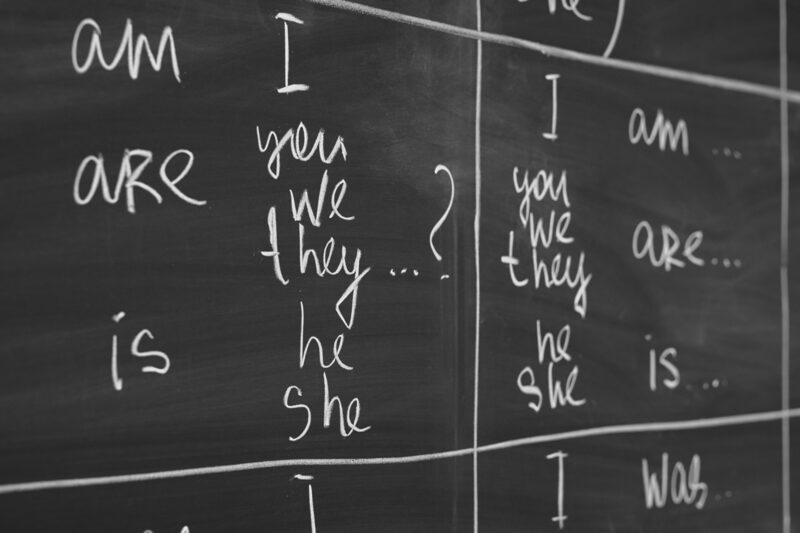 am I
are you
we
they ...?
is he
she
I am ...
you
we are...
they
he is...
she
I
I was...